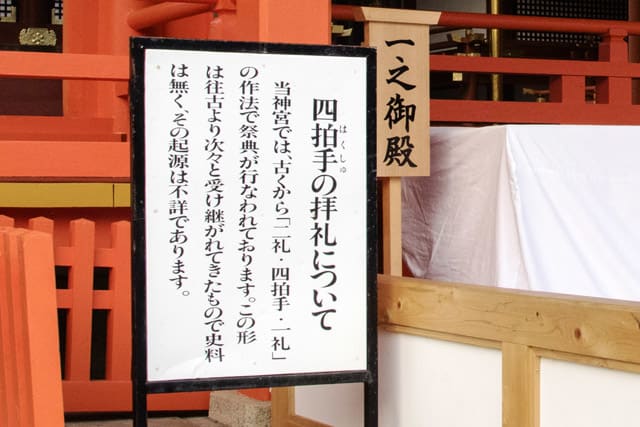 四拍手の拝礼について
はくしゅ
当神宮では、古くから「二礼・四拍手・一礼」
の作法で祭典が行なわれております。この形
は往古より次々と受け継がれてきたもので史料
は無く、その起源は不詳であります。
一之御殿